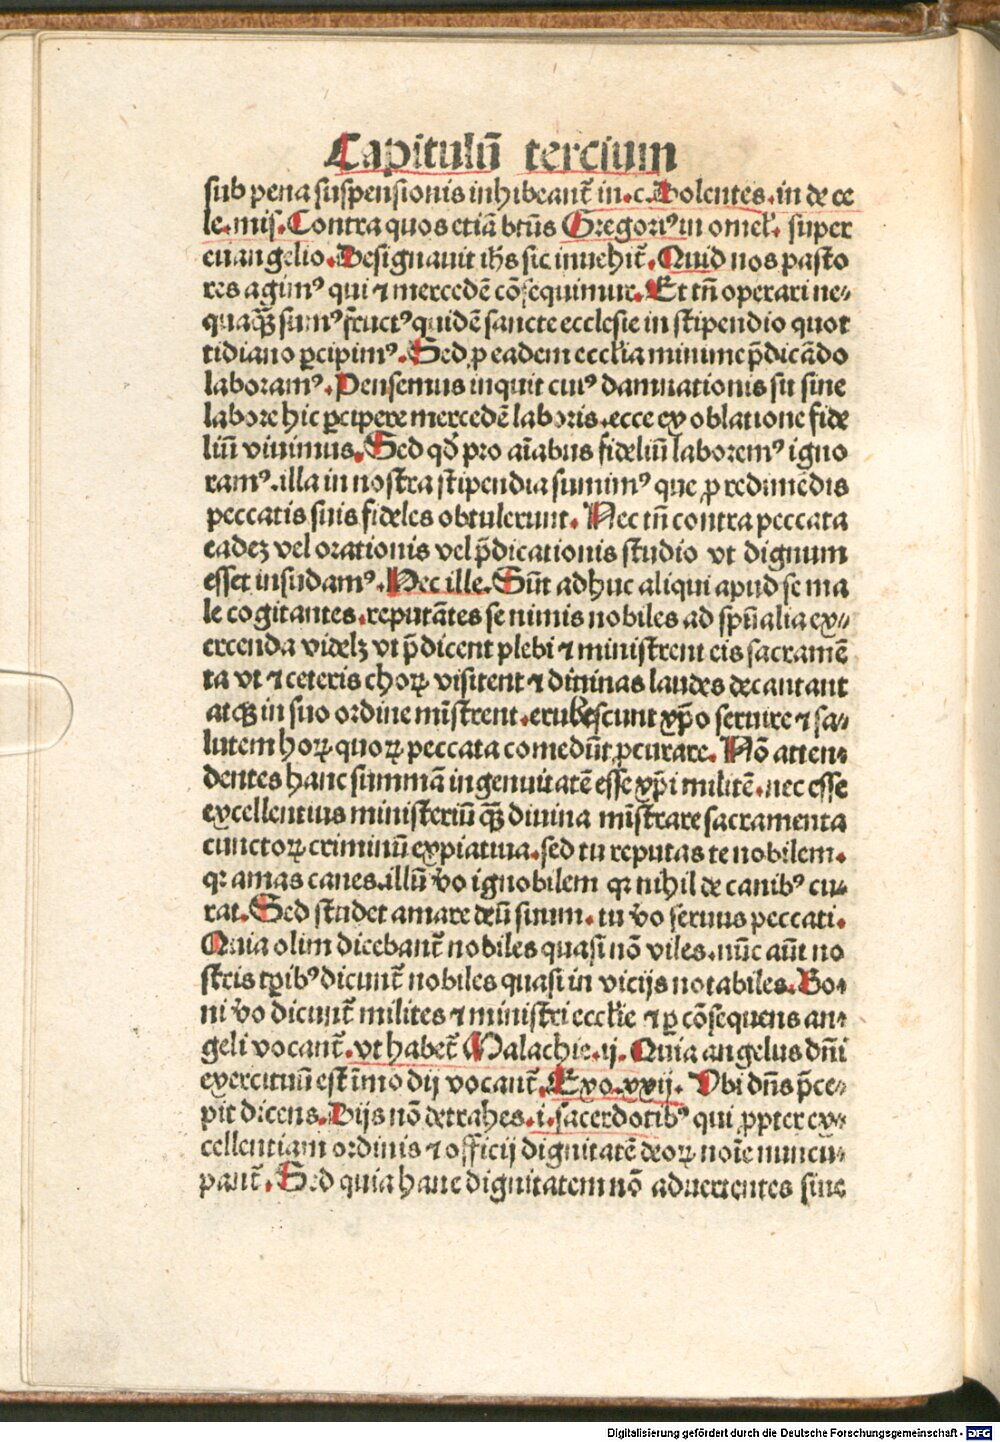 Capitulū tercium
sub pena suspensionis inhibeant̄ in.c. Dolentes.in de ce
le.mis. Contra quos etiā btūs Gregoriꝰ in omel'. super
euangelio. Designauit ihs sic inuehit̄. Quid nos pasto
res agimꝰ qui ⁊ mercedē cōsequimur. Et tn̄ operari ne⸗
quaqꝫ sumꝰ fructꝰ quidē sancte ecclesie in stipendio quot
tidiano ꝑcipimꝰ. Sed ꝓ eadem eccl'ia minime p̄dicādo
laboramꝰ. Pensemus inquit cuiꝰ damnationis sit sine
labore hic ꝑcipere mercedē laboris.ecce ex oblatione fide
liū viuimus. Sed qd' pro aīabus fideliū laboremꝰ igno
ramꝰ.illa in nostra stipendia sumimꝰ que ꝓ redimēdis
peccatis suis fideles obtulerunt. Nec tn̄ contra peccata
eadeꝫ vel orationis vel p̄dicationis studio vt dignum
esset insudamꝰ. Hec ille. Sūt adhuc aliqui apud se ma
le cogitantes.reputātes se nimis nobiles ad spūalia ex⸗
ercenda videlꝫ vt p̄dicent plebi ⁊ ministrent eis sacramē
ta vt ⁊ ceteris choꝝ visitent ⁊ diuinas laudes decantant
atqꝫ in suo ordine mīstrent.erubescunt xp̄o seruire ⁊ sa⸗
lutem hoꝝ quoꝝ peccata comedūt ꝓcurare. Nō atten⸗
dentes hanc summā ingenuitatē esse xp̄i militē.nec esse
excellentius ministeriū qꝫ diuina mīstrare sacramenta
cunctoꝝ criminū expiatiua.sed tu reputas te nobilem.
qꝛ amas canes.illū v̄o ignobilem qꝛ nihil de canibꝰ cu⸗
rat. Sed studet amare deū sinum. tu v̄o seruus peccati.
Quia olim dicebant̄ nobiles quasi nō viles.nūc aūt no
stris tꝑibꝰ dicunt̄ nobiles quasi in vicijs notabiles. Bo⸗
ni v̄o dicunt̄ milites ⁊ ministri eccl'ie ⁊ ꝑ cōsequens an⸗
geli vocant̄.vt habet̄ Malachie.ij. Quia angelus dn̄i
exercituū est īmo dij vocant̄. Exo.xxij. Vbi dn̄s p̄ce⸗
pit dicens. Dijs nō detrahes.i.sacerdotibꝰ qui ꝓpter ex⸗
cellentiam ordinis ⁊ officij dignitatē deoꝝ noīe nuncu⸗
pant̄. Sed quia hanc dignitatem nō aduertentes sine
Digitalisierung gefördert durch die Deutsche Forschungsgemeinschaft - DFG